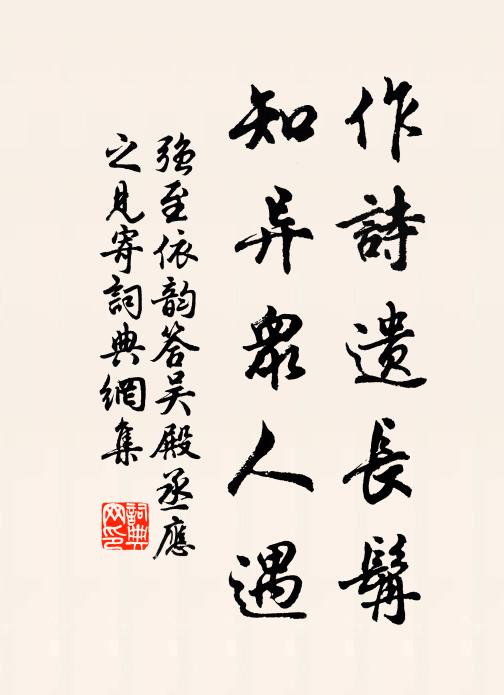 作詩遺長髯
知异眾人遇
强至依韵答吴殿丞應
之見寄詞典網集
詞典
网印